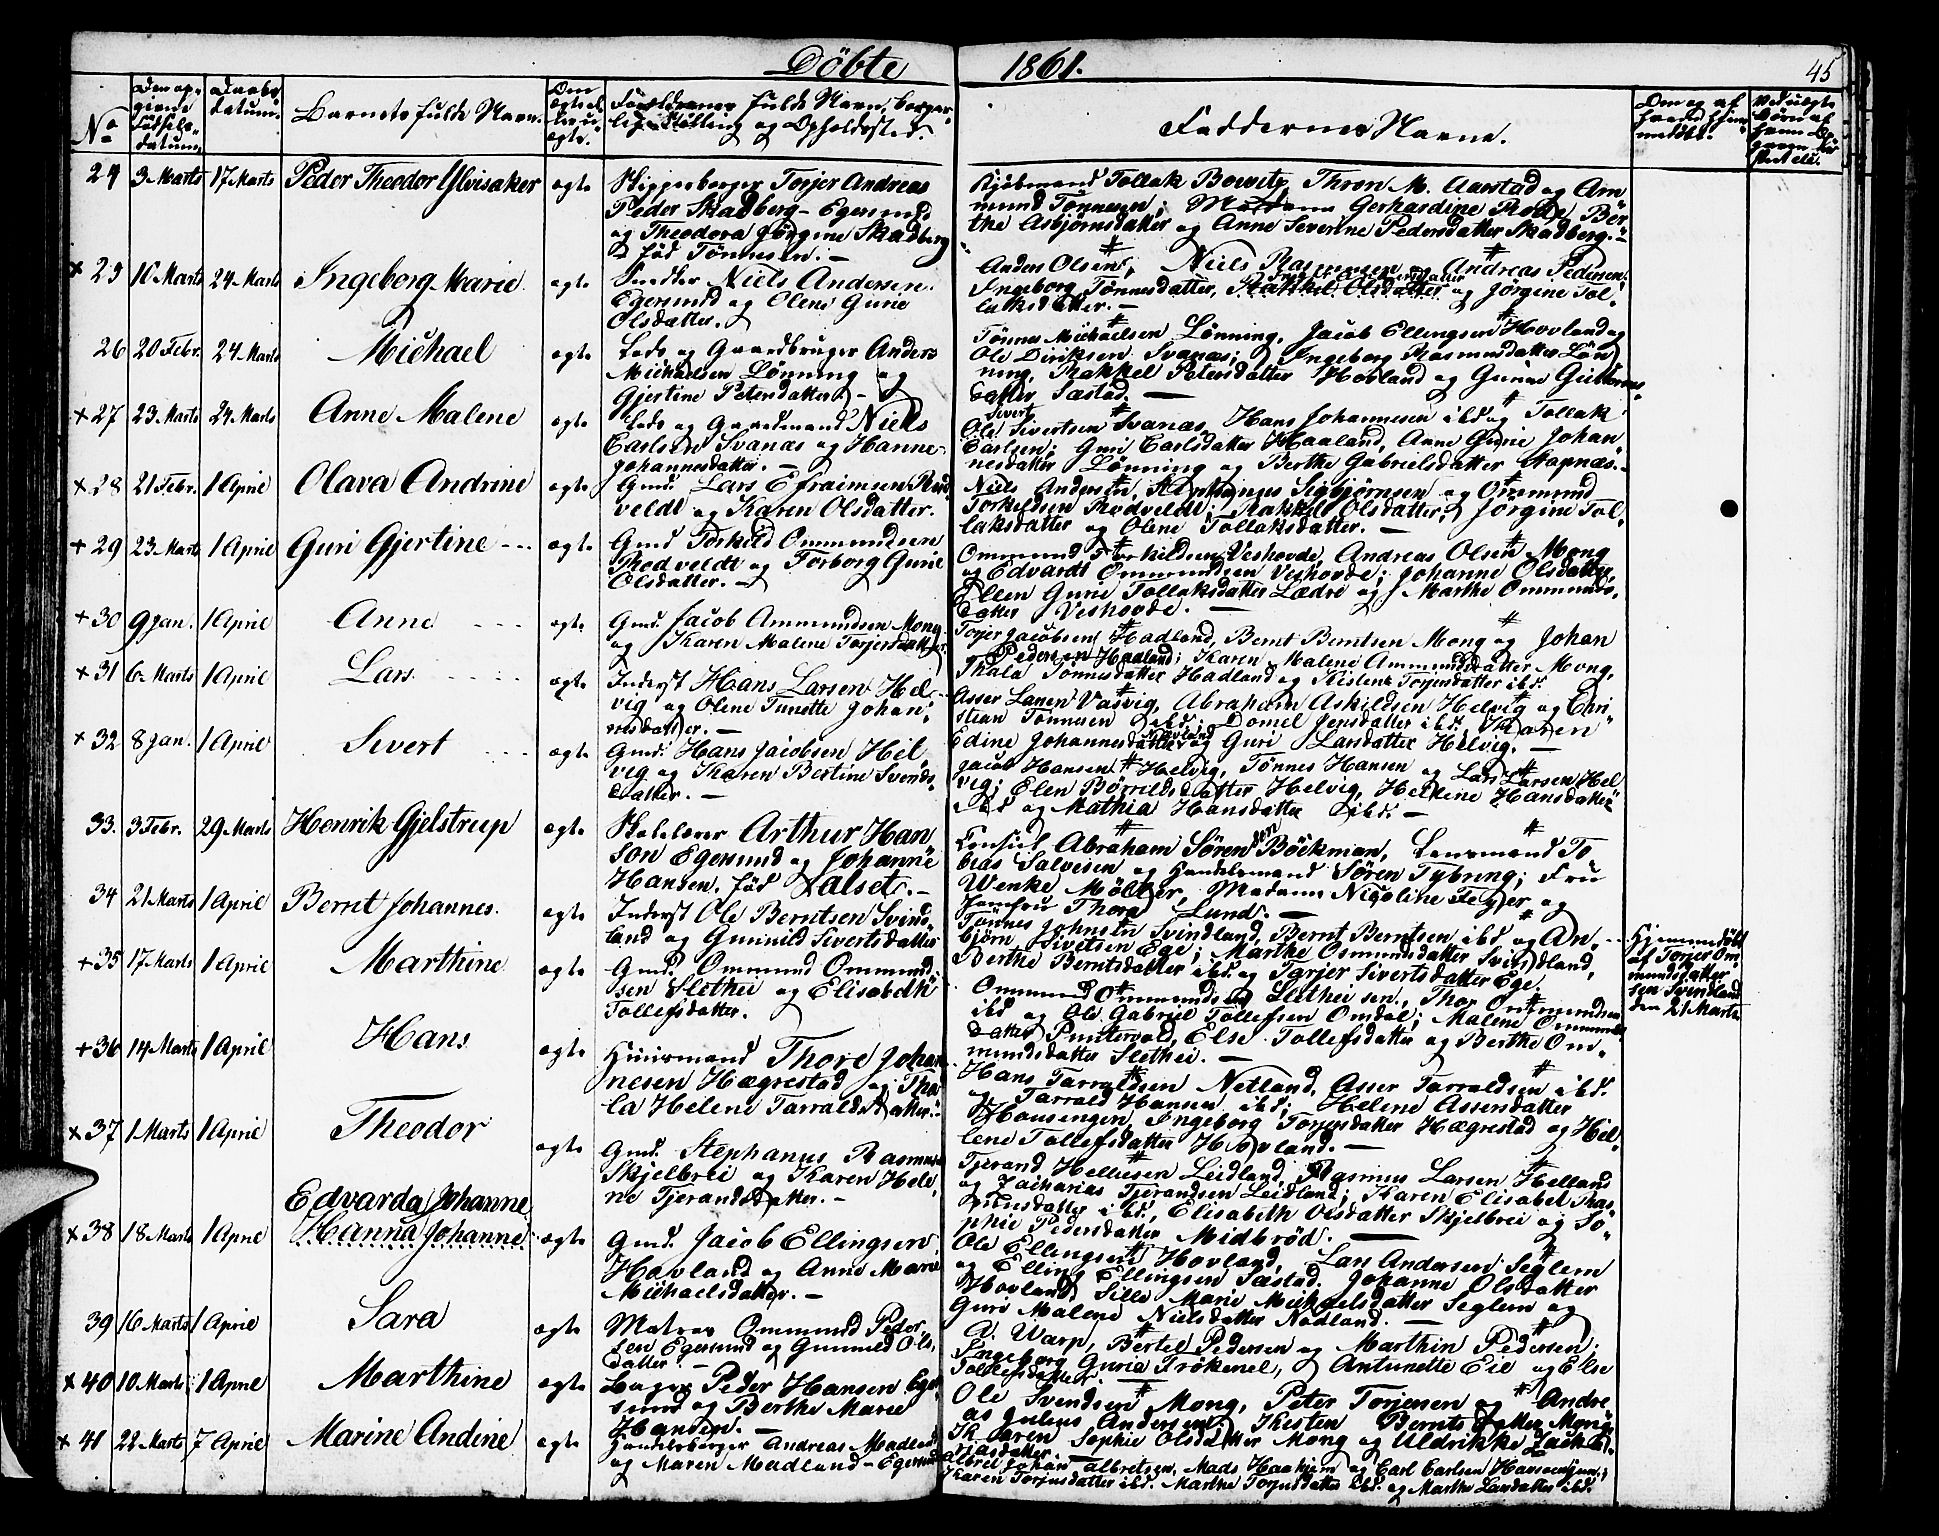 Döbte 1861. 45
No
Den opgivne Fødselsdatum.
Daabsdatum.
Barnets fulde Navn.
Om ægte eller uægte.
Forældrenes fulde Navn, borgerlige Stilling og Opholdssted.
Faddernes Navne.
24 3 Marts 17 Marts Peder Theodor Ylvisaker ægte
Skipperborger Torjer Andreas
Peder Skadberg - Egersund
og Theodora Jörgine Skadberg
född Tönnesen. -
Kjöbmand Tollak Bowitz, Thron M. Aarstad og Am
mund Tönnesen; Madame Gerhardine Rode, Ber
the Asbjörnsdatter og Anne Severine Pedersdatter Skadberg. -
x 25 10 Marts 24 Marts Ingeborg Marie ægte
Snedker Niels Andersen
Egersund og Olene Gurie
Olsdatter. -
Anders Olsen, Niels Rasmussen, Andreas Pedersen;
Ingeborg Tönnesdatter, Rakkel Olsdatter og Jörgine Tol-
laksdatter. -
26 20 Febr. 24 Marts Michael ægte
Lods og Gaardbruger Anders
Michaelsen Lönning og
Gjertine Petersdatter -
Tönnes Michaelsen Lönning, Jacob Ellingsen Hovland og
Ole Diriksen Svanæs; Ingeborg Rasmusdatter Lön
ning, Rakkel Petersdatter Hovland og Gunne Guttorms-
datter Sæstad. -
x 27 23 Marts 24 Marts Anne Malene ægte
Lods og Gaardmand Niels
Carlsen Svanæs og Hanne
Johannesdatter. -
Sivert
Ole Sivertsen Svanæs, Hans Johannesen ibd og Tollak
Carlsen; Guri Carlsdatter Haaland, Anne Gurie Johan
nesdatter Lönning og Berthe Gabrielsdatter Stapnæs. -
x 28 21 Febr. 1 April Olava Andrine ægte
Gmd. Lars Efraimsen Rod
veldt og Karen Olsdatter.
Niels Andersen, Sigbjörnsen og Ommund
Torkeldsen Rodveldt; Rakkel Olsdatter, Jörgine Tol-
laksdatter og Olene Tollaksdatter. -
+ 29 23 Marts 1 April Guri Gjertine ægte
Gmd Torkild Ommundsen
Rodveldt og Torborg Gurie
Olsdatter. -
Ommund Torkildsen Veshovde, Andreas Olsen Mong
og Edvardt Ommundsen Veshovde; Johanne Olsdatter,
Ellen Gurie Tollaksdatter Lædre og Marthe Ommunds-
datter Veshovde. -
+ 30 9 Jan. 1 April Anne ægte
Gmd. Jacob Ammundsen Mong
og Karen Malene Torjersdatter.
Torjer Jacobsen Hadland, Bernt Berntsen Mong og Johan
Pedersen Haaland; Karen Malene Ammundsdatter Mong,
Thala Tönnesdatter Hadland og Kislene Torjersdatter ibd.
x 31 6 Marts 1 April Lars ægte
Inderst Hans Larsen Hel-
vig og Olene Tunette Johan-
nesdatter. -
Asser Larsen Vasvig, Abraham Askildsen Helvig og Chri
stian Tönnesen ibd; Domel Jensdatter ibd, Karen
Edine Johannesdatter Navland og Guri Larsdatter Helvig. -
x 32 8 Jan. 1 April Sivert ægte
Gmd. Hans Jacobsen Hel
vig og Karen Bertine Siverds-
datter. -
Jacob Hansen Helvig, Tönnes Hansen og Lars Larsen Hel
vig; Elen Börrildsdatter Helvig, Helene Hansdatter
ibd og Mathia Hansdatter ibd. -
33. 3 Febr. 29 Marts Henrik Gjelstrup ægte
Skolelærer Arthur Han
son Egersund og Johanne
Hansen, föd Valset. -
Consul Abraham Sörensen Böckman, Lensmand To
bias Salvesen og Handelsmand Sören Tybring; Fru
Wenke Mölker, Madame Nicoline Feyer og
Jomfru Thora Lund. -
34 21 Marts 1 April Bernt Johannes. ægte
Inderst Ole Berntsen Svind
land og Gunnild Sivertsdatter
Tönnes Johnsen Svindland, Bernt Berntsen ibd og An-
björn Sivetsen Ege; Marthe Osmundsdatter Svindland,
Berthe Berntsdatter ibd. og Torjer Sivertsdatter Ege.
Hjemmedöbt
af Torjer Om
mundsdatter
Svindland
den 21 Marts
+ 35 17 Marts 1 April Marthine ægte
Gmd. Ommund Ommund
sen Slethei og Elisabeth
Tollefsdatter.
Ommund Ommundsen Slethei sen., Thor Ommundsen
ibd og Ole Gabriel Tollefsen Omdal; Malene Ommunds
datter Puntervold, Else Tollefsdatter og Berthe Om-
mundsdatter Slethei. -
+ 36 14 Marts 1 April Hans ægte
Huusmand Thore Johan
nesen Hægrestad og Tha
la Helene Tarraldsdatter. -
Hans Tarraldsen Netland, Asser Tarraldsen ibd.
Tarrald Hansen ibd; Helene Assersdatter
Housengen, Ingeborg Torjersdatter Hægrestad og Hel-
lene Tollefsdatter Hovland. -
x 37 1 Marts 1 April Theodor ægte
Gmd. Stephanus Rasmus
Skjelbrei og Karen Hele
ne Tjerandsdatter. -
Tjerand Helliesen Leidland, Rasmus Larsen Helland
og Zacharias Tjerandsen Leidland; Karen Elisabet Ras-
musdatter ibd, Elisabeth Olsdatter Skjelbrei og So-
phie Pedersdatter Midbröd. -
Edvarda Johanne
x 38 18 Marts 1 April Hanna Johanne ægte
Gmd. Jacob Ellingsen
Hovland og Anne Marie
Michaelsdatter. -
Ole Ellingsen Hovland, Lars Andersen Seglem
og Elling Ellingsen Sæstad. Johanne Olsdatter
Hovland, Sille Marie Michaelsdatter Seglem og
Guri Malene Nielsdatter Nodland. -
39 16 Marts 1 April Sara ægte
Matros Ommund Peder-
sen Egersund og Gunnild Ols-
datter. -
A. Warp, Bertel Pedersen og Marthin Pedersen;
Ingeborg Gurie Frökenel, Antunette Eie og Else
Tollefsdatter. -
x 40 10 Marts 1 April Marthine ægte
Bager Peder Hansen Eger
sund og Berthe Marie
Hansen. -
Ole Svendsen Mong, Peter Torjersen og Andre-
as Julius Andersen; Kisten Berntsdatter Mong,
Karen Sophie Olsdatter Mong og Uldrikke Zacha
riasdatter
x 41 22 Marts 7 April Marine Andine ægte
Handelsborger Andreas Madland
og Maren Madland - Egersund
Albret Johan Albretsen, Mads Haakjem og Carl Carlsen;
Karen Torjersdatter ibd. Marthe Torjersdatter ibd. og Marthe Larsdatter ibd.